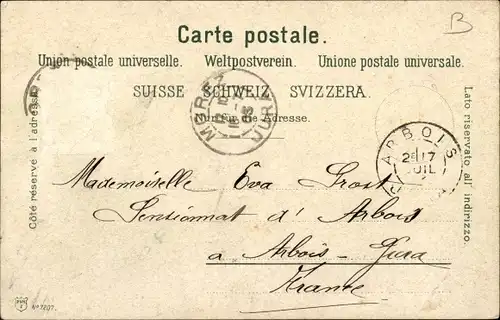 B
Carte postale.
Union postale universelle. Weltpostverein. Unione postale universale.
SUISSE SCHWEIZ SVIZZERA.
Nur für die Adresse.
Côté réservé à l'adresse.
Lato riservato all' indirizzo.
MOREZ
JURA
ARBOIS
JUIL
Mademoiselle Eva Frost
Pensionnat d'Arbois
a Arbois - Jura
France
No 7207.